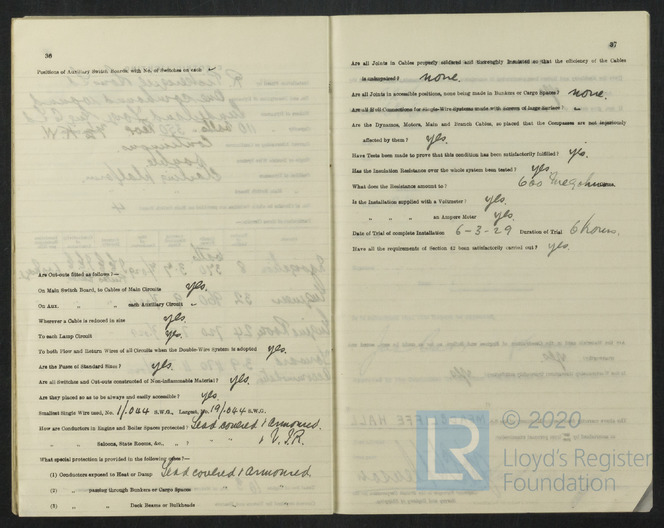 36
Positions of Auxiliary Switch Boards, with No. of Switches on each
Are Cut-outs fitted as follows?—
On Main Switch Board, to Cables of Main Circuits yes.
On Aux. " " each Auxiliary Circuit
Wherever a Cable is reduced in size yes.
To each Lamp Circuit yes.
To both Flow and Return Wires of all Circuits when the Double-Wire System is adopted yes.
Are the Fuses of Standard Sizes? yes.
Are all Switches and Cut-outs constructed of Non-inflammable Material? yes.
Are they placed so as to be always and easily accessible? yes.
Smallest Single Wire used, No. 1/.044 S.W.G., Largest, No. 19/.044 S.W.G.
How are Conductors in Engine and Boiler Spaces protected? Lead covered & armoured.
" " Saloons, State Rooms, &c., " ? " & V.I.R.
What special protection is provided in the following cases?—
(1) Conductors exposed to Heat or Damp Lead covered & armoured.
(2) " passing through Bunkers or Cargo Spaces "
(3) " " Deck Beams or Bulkheads
37
Are all Joints in Cables properly soldered and thoroughly insulated so that the efficiency of the Cables
is unimpaired? none.
Are all Joints in accessible positions, none being made in Bunkers or Cargo Spaces? none.
Are all Hull Connections for Single-Wire Systems made with Screws of large Surface?
Are the Dynamos, Motors, Main and Branch Cables, so placed that the Compasses are not injuriously
affected by them? yes.
Have Tests been made to prove that this condition has been satisfactorily fulfilled? yes.
Has the Insulation Resistance over the whole system been tested? yes.
What does the Resistance amount to? Megohms
Is the Installation supplied with a Voltmeter? yes.
" " " an Ampere Meter yes.
Date of Trial of complete Installation 6-3-29 Duration of Trial 6 hours.
Have all the requirements of Section 42 been satisfactorily carried out? yes.
LR © 2020
Lloyd's Register
Foundation